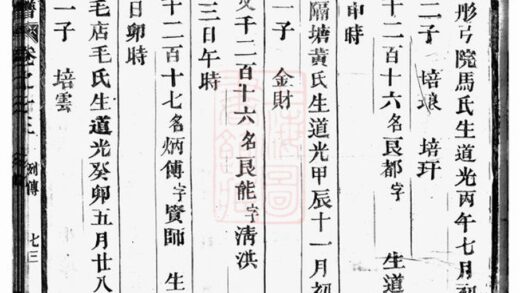 彤弓院馬氏生道光丙午七月初
二子 培琅 培玕
十二百十六名良都字 生道
申時
隔塘黃氏生道光甲辰十一月初
一子 金財
千二百十六名良能字清洪
三日午時
十二百十七名炳傳字賓師 生
日卯時
毛店毛氏生道光癸卯五月廿八
一子 培雲
譜 卷之 三 列傳 七三